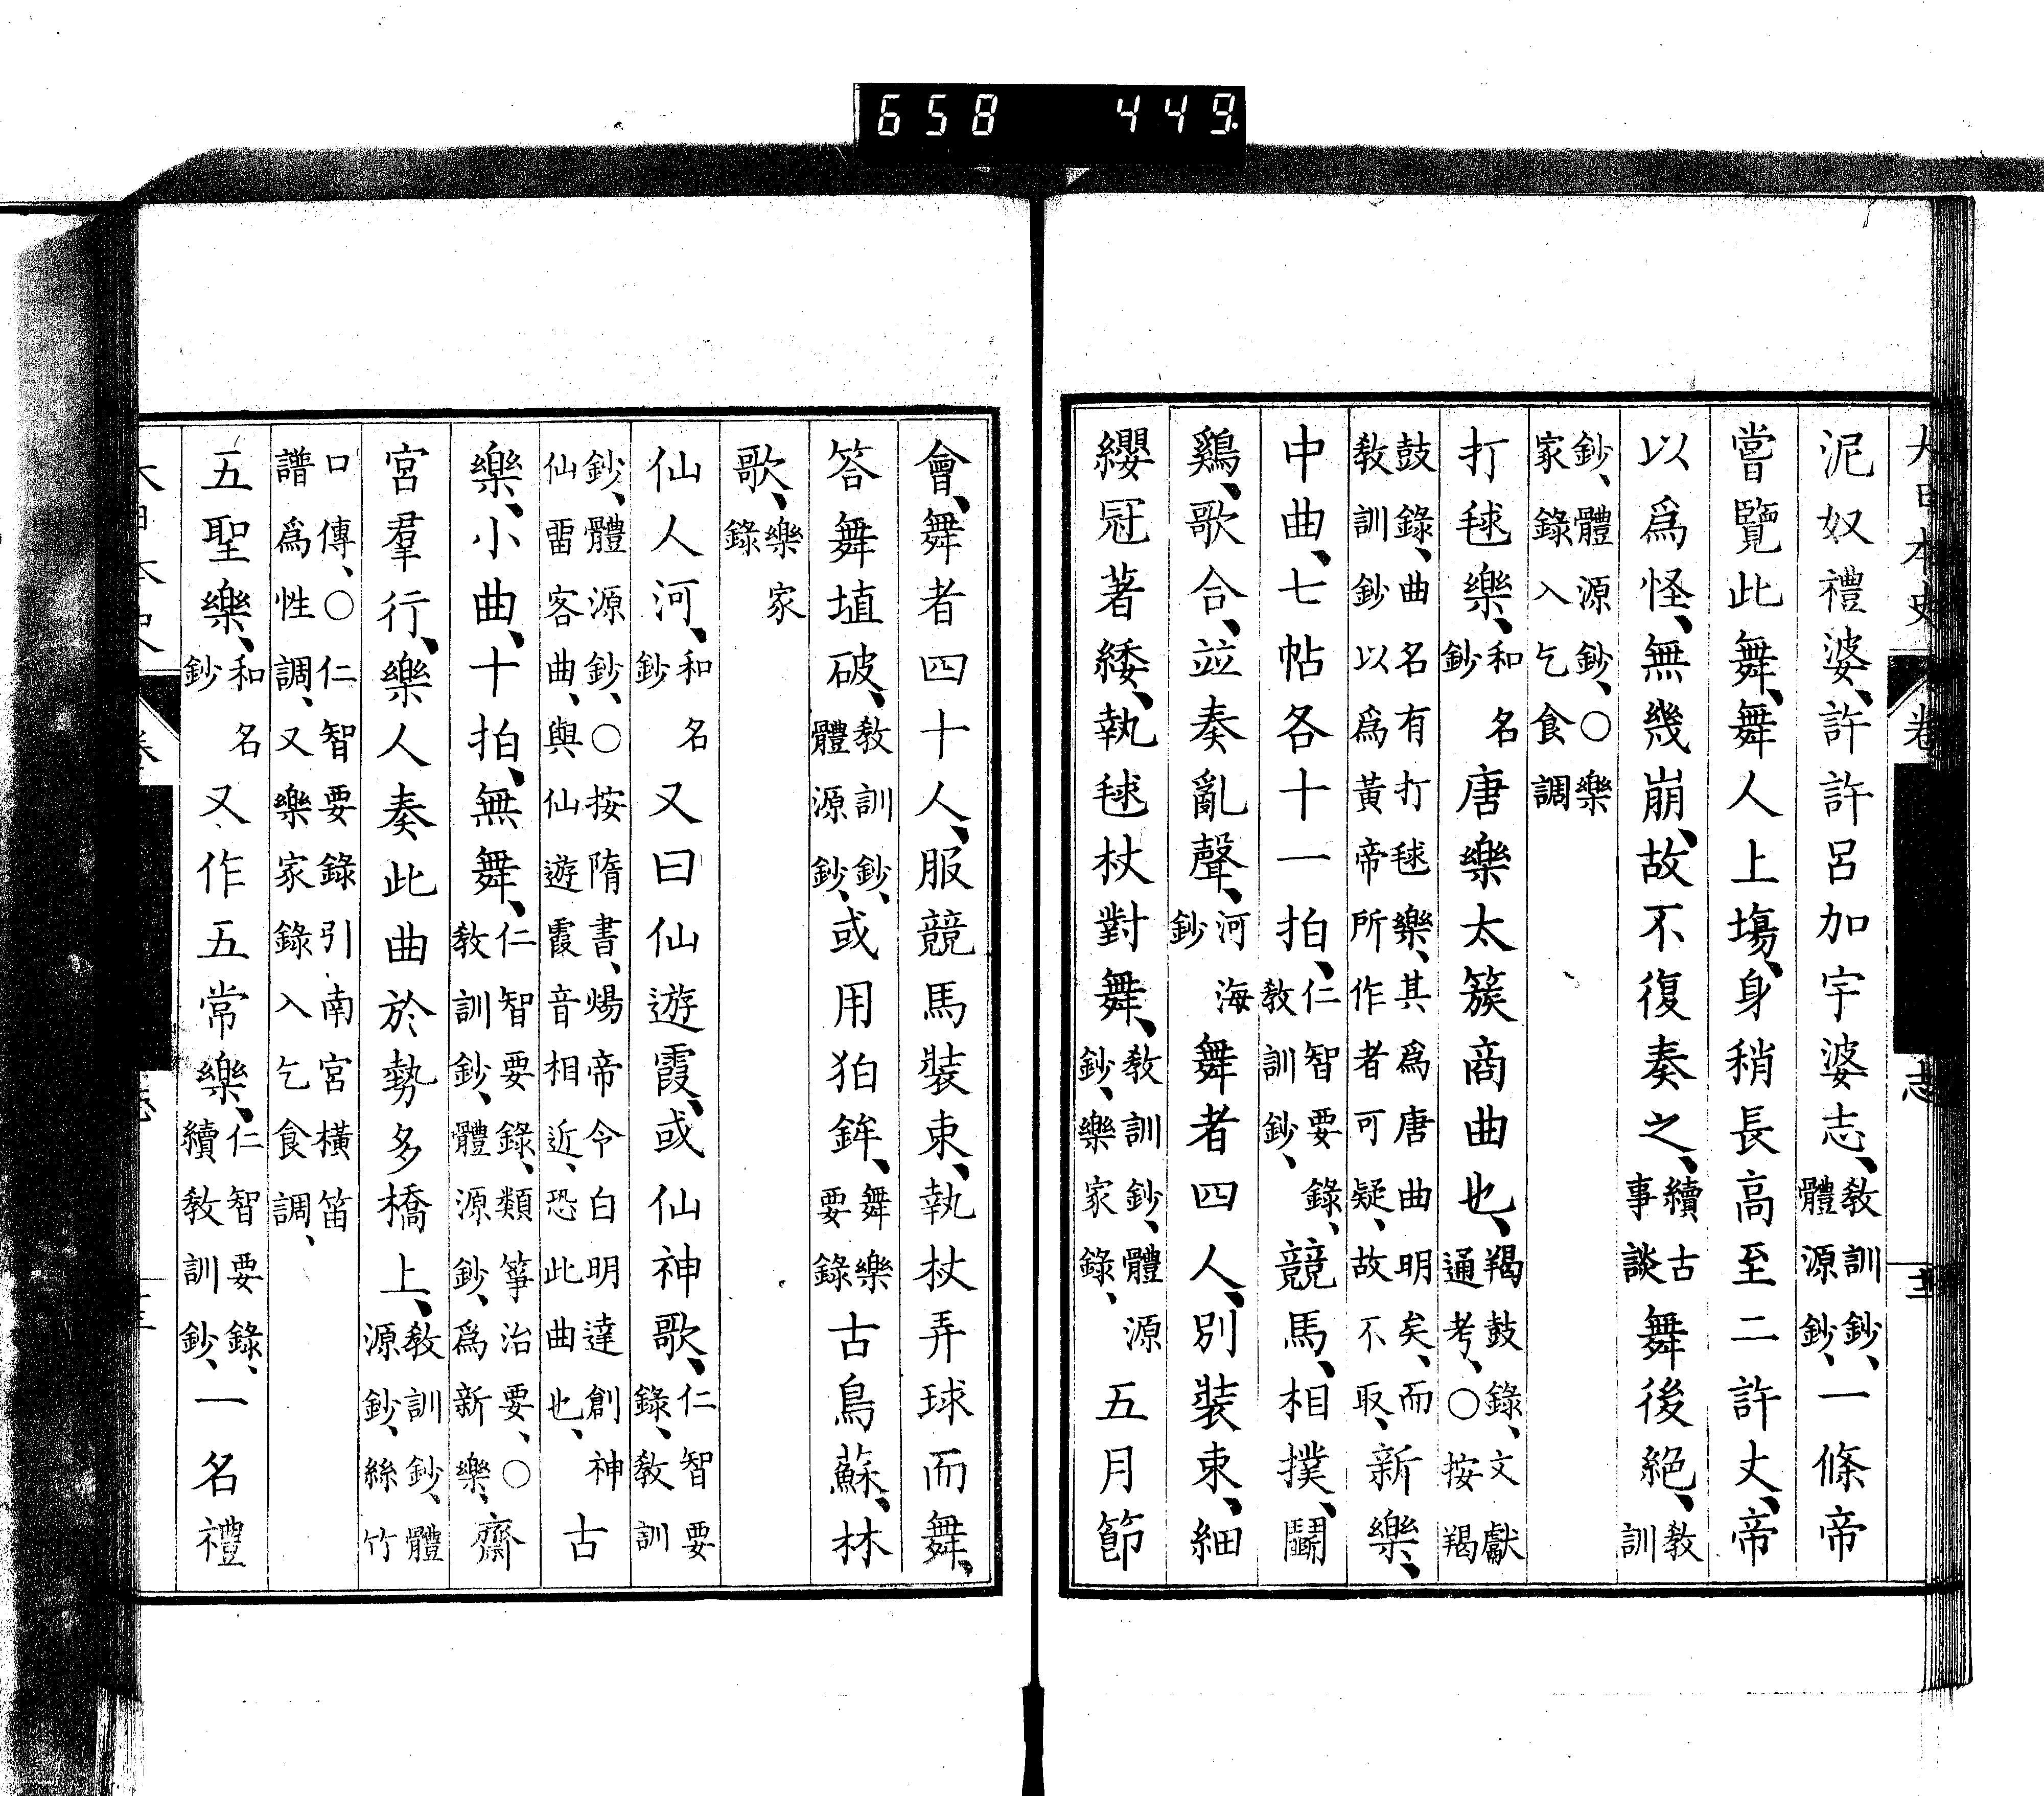 658 449.
大日本史 卷 志
泥奴禮婆、許許呂加宇婆志、教訓鈔、體源鈔、一條帝
嘗覽此舞、舞人上場、身稍長高至二許丈、帝
以爲怪、無幾崩、故不復奏之、續古事談舞後絕、教訓
鈔、體源鈔、○樂家錄入乞食調
打毬樂、和名鈔唐樂太簇商曲也、羯鼓錄、文獻通考、○按羯
鼓錄、曲名有打毬樂、其爲唐曲明矣、而教訓鈔以爲黃帝所作者可疑、故不取、新樂、
中曲、七帖各十一拍、仁智要錄、教訓鈔、競馬、相撲、鬭
鷄、歌合、竝奏亂聲、河海鈔舞者四人、別裝束、細
纓冠著緌、執毬杖對舞、教訓鈔、體源鈔、樂家錄、五月節
會、舞者四十人、服競馬裝束、執杖弄球而舞、
答舞埴破、教訓鈔、體源鈔、或用狛鉾、舞樂要錄古鳥蘇、林
歌、樂家錄
仙人河、和名鈔又曰仙遊霞、或仙神歌、仁智要錄、教訓
鈔、體源鈔、○按隋書、煬帝令白明達創神仙畱客曲、與仙遊霞音相近、恐此曲也、古
樂、小曲、十拍、無舞、仁智要錄、類箏治要、○教訓鈔、體源鈔、爲新樂、齋
宮羣行、樂人奏此曲於勢多橋上、教訓鈔、體源鈔、絲竹
口傳、○仁智要錄引南宮橫笛譜爲性調、又樂家錄入乞食調、
五聖樂、和名鈔又作五常樂、仁智要錄、續教訓鈔、一名禮